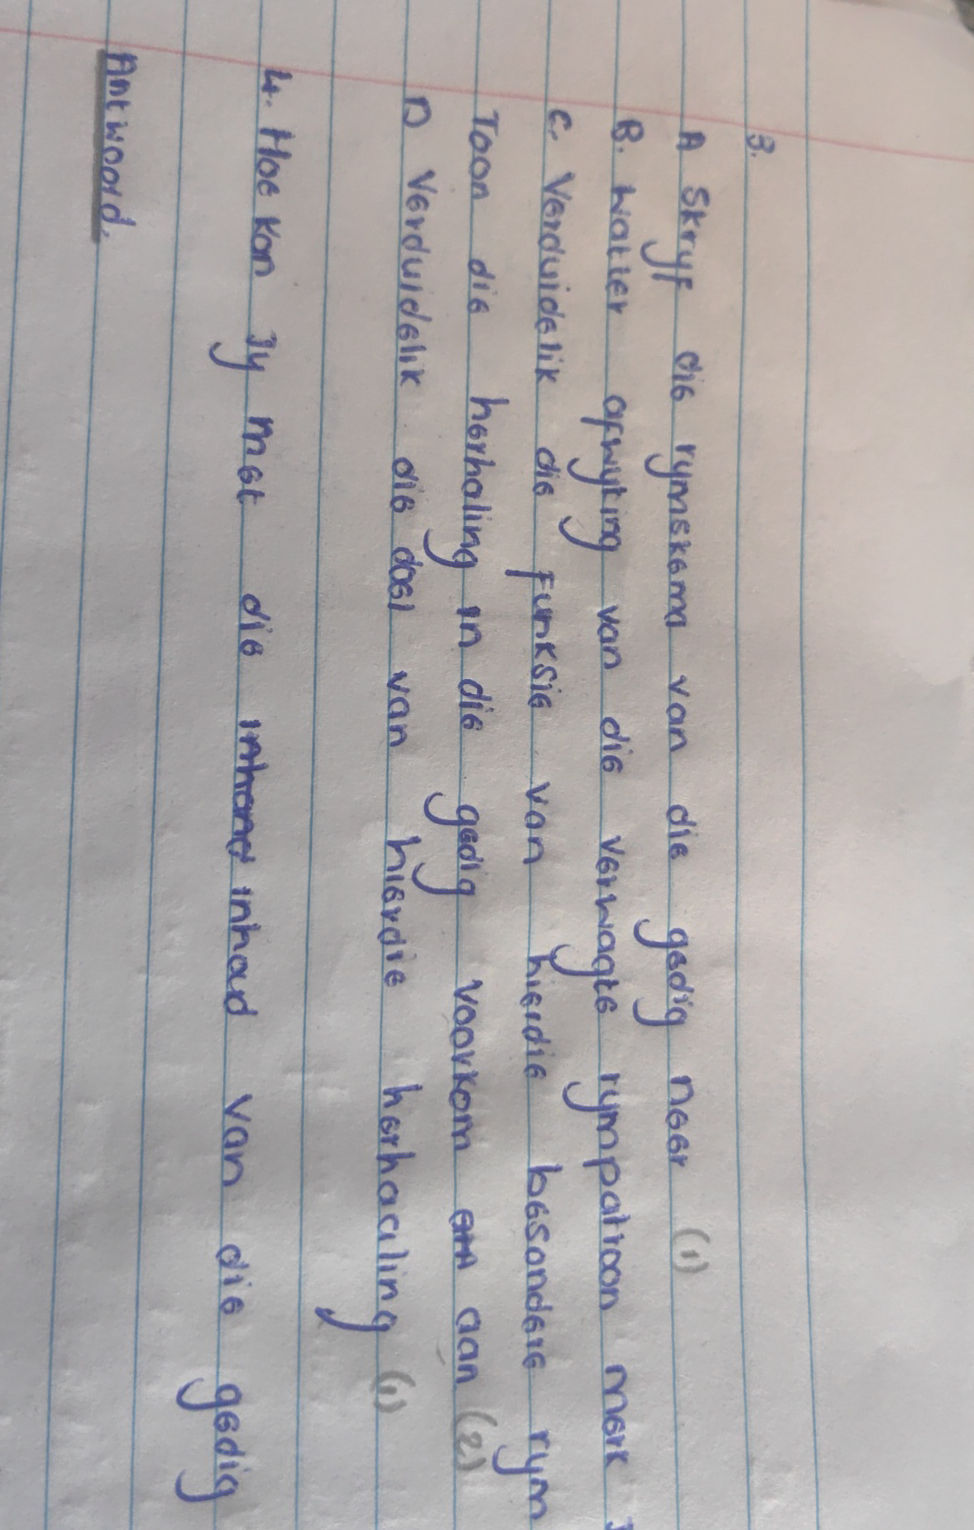 3.
A Skryf die rymskema van die gedig neer (1)
B. Watter afwyking van die verwagte rympatroon merk
C. Verduidelik die funksie van hierdie besondere rym
Toon die herhaling in die gedig voorkom aan (2)
D Verduidelik die doel van hierdie herhaaling (1)
4. Hoe kan Jy met die inhoud van die gedig
Antwoord.